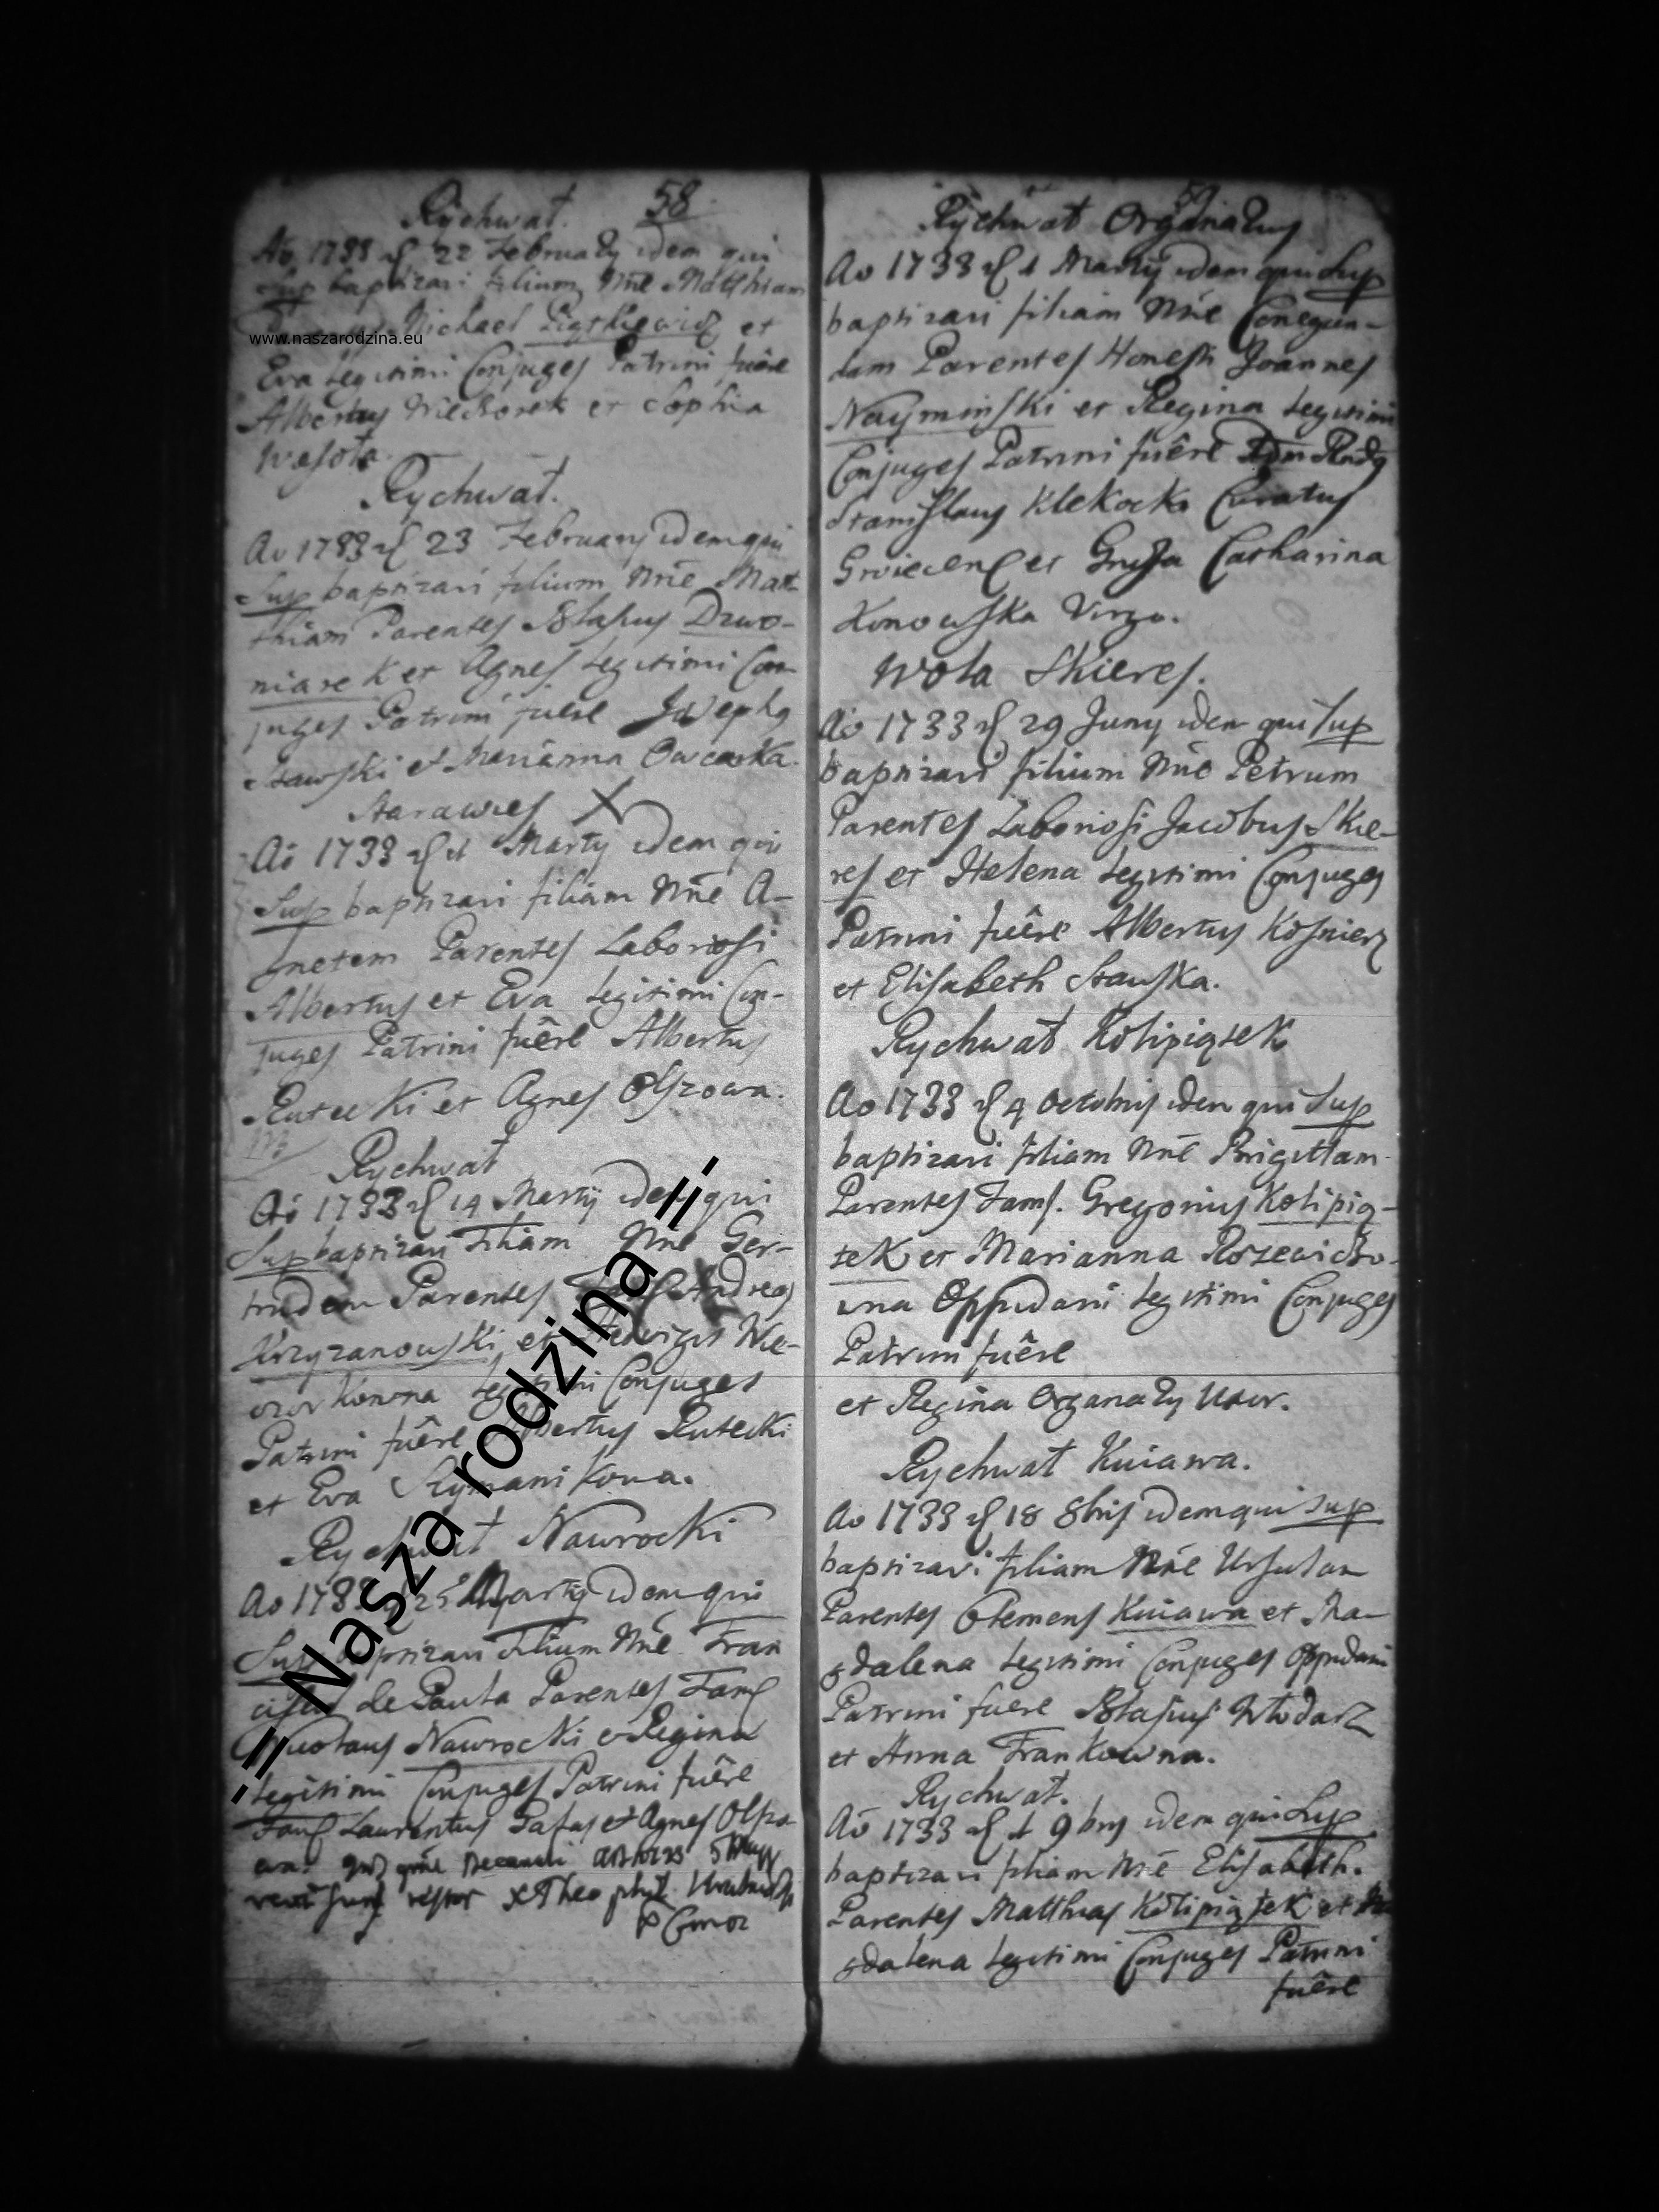 58
Rychwał.
Ao 1733 d 22 February idem qui
Sup baptizavi filium Nñe Matthiam
Michael et
Eva legitimi Conjuges Patrini fuêre
Albertus et Sophia
Wesoła.
Rychwał.
Ao 1733 d 23 February idem qui
Sup baptizavi filium Nñe Mat-
thiam Parentes Blasius Dzwo-
niarek et Agnes legitimi Con-
juges Patrini fuere Josephg
Stawski et Marianna
Starawies X
Aö 1733 d 1 Marty idem qui
Sup baptizavi filiam Nñe A-
gnetem Parentes Laboriosi
Albertus et Eva legitimi Con-
juges Patrini fuêre Albertus
Rutecki et Agnes Olszowa.
Rychwał
Aö 1733 d 14 Martij idem qui
Sup baptizavi Filiam Nñe Ger-
trudem Parentes Andreas
Krzyzanowski et Hedvigis Wie-
czorkowna legitimi Conjuges
Patrini fuêre Albertus Rutecki
et Eva
Rychwał Nawrocki
Ao 1733 d 25 Martij idem qui
Sup baptizavi Filium Nñe Fran
de Paula Parentes Fam
Nawrocki et Regina
legitimi Conjuges Patrini fuêre
Fam Laurentus et Agnes Olszo-
wa.
Rychwał Organiaŧy
Ao 1733 d 1 Martij idem qui Sup
baptizavi filiam Nñe Conegun-
dam Parentes Honesti Joannes
Nayminski et Regina legitimi
Conjuges Patrini fuêre
Stanislaus Klekocki Curatus
et Catharina
Konowska Virgo.
Wola Skieres.
Aö 1733 d 29 Juny idem qui Sup
baptizavi filium Nñe Petrum
Parentes Laboriosi Jacobus Skie-
res et Helena legitimi Conjuges
Patrini fuêre Albertus Kośnierz
et Elisabeth Stawska.
Rychwał Kolipiątek
Ao 1733 d 4 Octobris idem qui Sup
baptizavi filiam Nñe Brigittam
Parentes Fam. Gregorius Kolipią-
tek et Marianna
wna Oppidani legitimi Conjuges
Patrini fuêre
et Regina Organaŧy Uxor.
Rychwał Kuiawa.
Ao 1733 d 18 8bris idem qui Sup
baptizavi filiam Nñe Ursulam
Parentes Clemens Kuiawa et Ma-
gdalena legitimi Conjuges Oppidani
Patrini fuere Blasius Włodarz
et Anna Frankowna.
Rychwał.
Aö 1733 d 1 9bris idem qui Sup
baptizavi filiam Nñe Elisabeth.
Parentes Matthias Kolipiątek et Ma
gdalena legitimi Conjuges Patrini
fuêre
www.naszarodzina.eu
-=Nasza rodzina=-